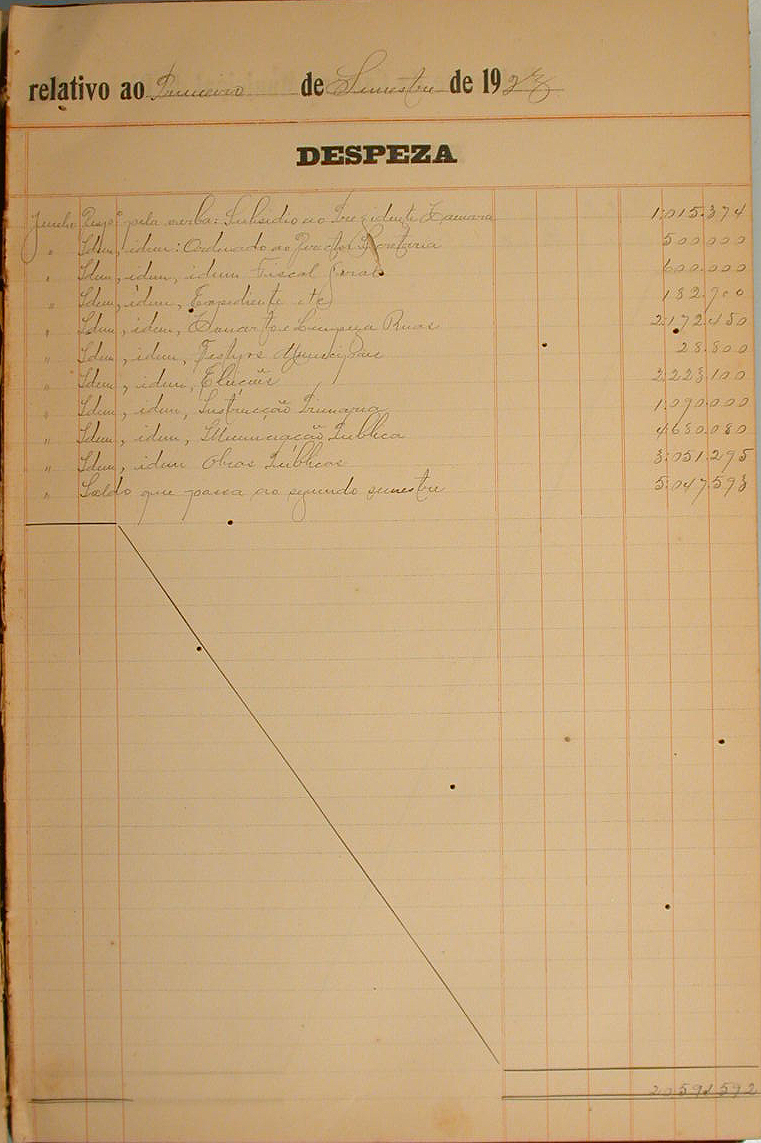 relativo ao Primeiro de Semestre de 1927
DESPEZA
Junho Pago pela verba: Subsidio ao Presidente Camara 1:015.374
" Idem, idem: Ordenado ao Director Secretaria 500.000
" Idem, idem, idem Fiscal Geral 600.000
" Idem, idem, Expediente etc 182.900
" Idem, idem, Limpeza Ruas 2:172.450
" Idem, idem, Municipaes 28.800
" Idem, idem, Eleições 2.223.100
" Idem, idem, Instrucção Primaria 1.090.000
" Idem, idem, Publica 4.680.080
" Idem, idem Obras Públicas 3:051.295
" Saldo que passa ao segundo semestre 5:047.593
20591592